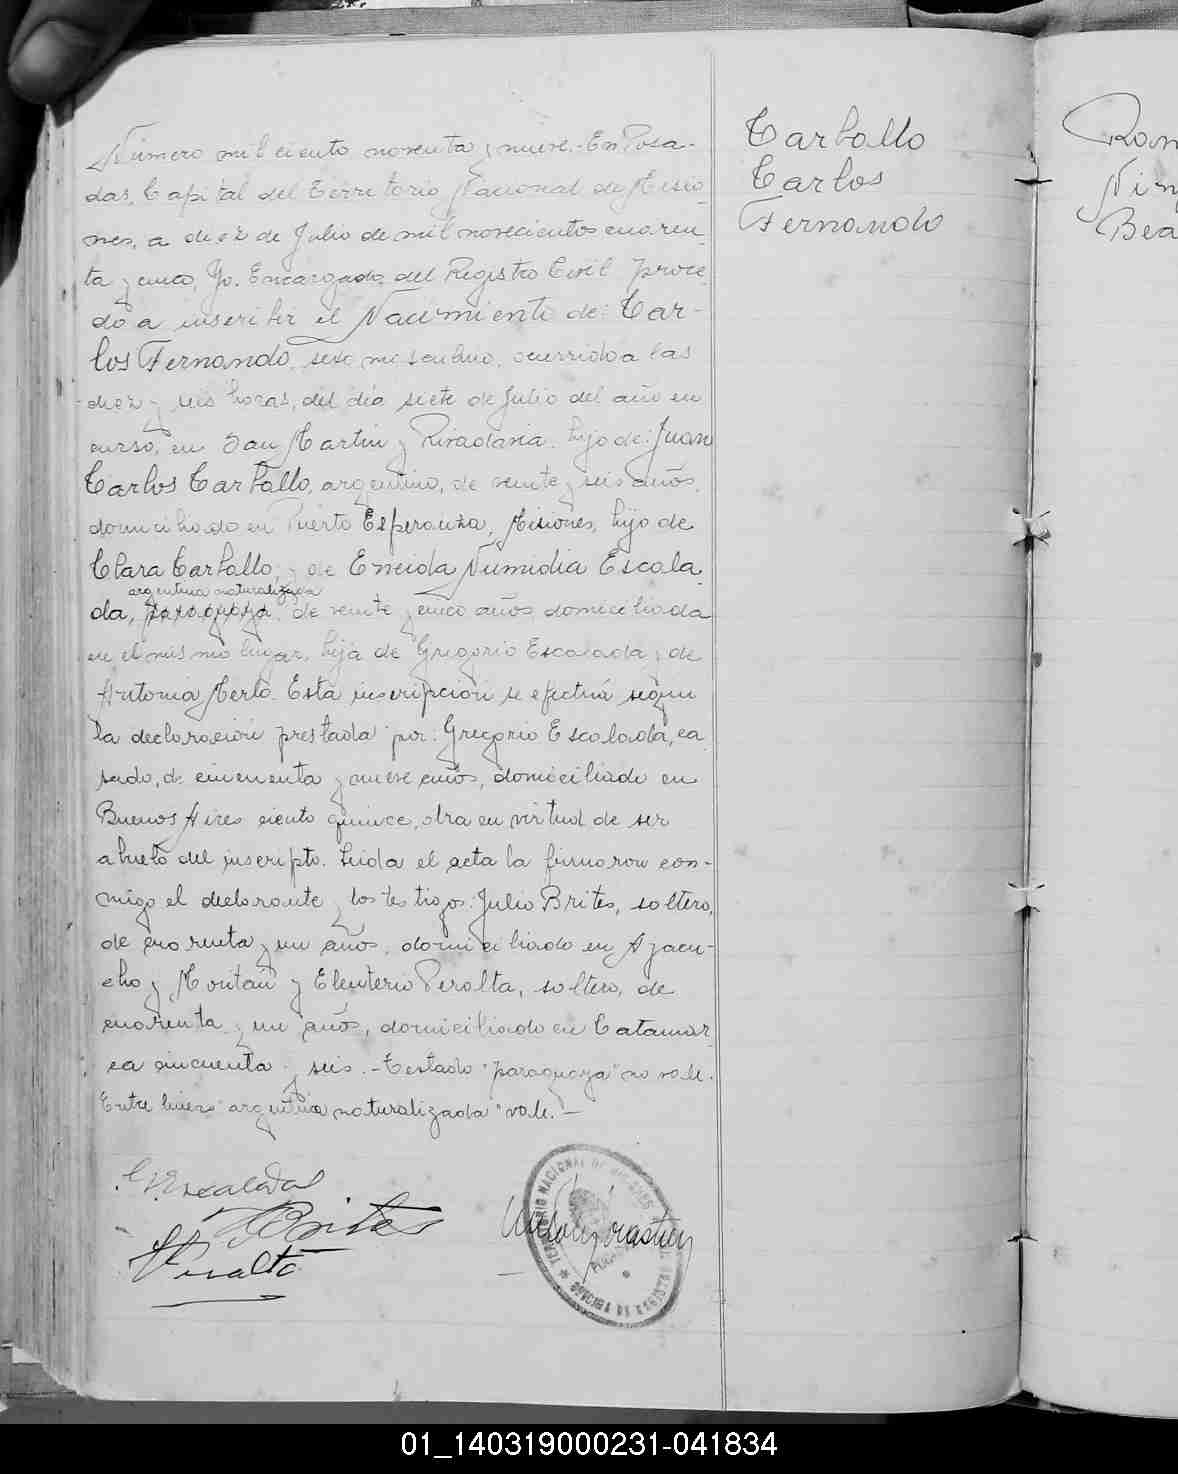 Número mil ciento noventa y nueve.- En Posa-
das, Capital del Territorio Nacional de Misio
nes, a diez de Julio de mil novecientos cuaren
ta y cinco, Yo, Encargado del Registro Civil proce
do a inscribir el Nacimiento de: Car-
los Fernando, sexo masculino, ocurrido a las
diez y seis horas, del día siete de Julio del año en
curso, en San Martin y Rivadavia. hijo de: Juan
Carlos Carballo, argentino, de veinte y seis años,
domiciliado en Puerto Esperanza, Misiones, hijo de
Clara Carballo; y de Eneida Numidia Escala
argentina naturalizada
da, paraguaya, de veinte y cinco años, domiciliada
en el mismo lugar, hija de Gregorio Escalada y de
Antonia Merlo. Esta inscripción se efectúa según
la declaración prestada por: Gregorio Escalada, ca
sado, de cincuenta y nueve años, domiciliado en
Buenos Aires ciento quince, obra en virtud de ser
abuelo del inscripto. Leida el acta la firmaron con-
migo el declarante y los testigos: Julio Brites, soltero,
de cuarenta y un años, domiciliado en Ayacu-
cho y y Eleuterio Peralta, soltero, de
cuarenta y un años, domiciliado en Catamar
ca cincuenta y seis.- Testado "paraguaya" no vale.
Entre lineas "argentina naturalizada" vale.-
G. Escalada
J Brites
E Peralta
TERRITORIO NACIONAL DE MISIONES
POSADAS
Carballo
Carlos
Fernando
Ram
Nin
Bea
01_140319000231-041834